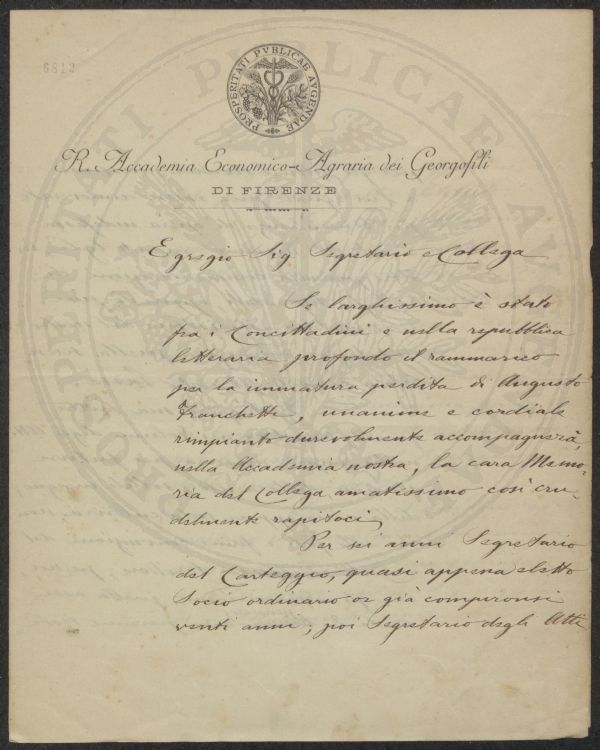 6813
PROSPERITATI PVBLICAE AVGENDAE
R. Accademia Economico-Agraria dei Georgofili
DI FIRENZE
Egregio Sig. Segretario e Collega
Se larghissimo è stato
fra i Concittadini e nella repubblica
letteraria profondo il rammarico
per la immatura perdita di Augusto
Franchetti, unanime e cordiale
rimpianto durevolmente accompagnerà,
nella Accademia nostra, la cara Memo-
ria del Collega amatissimo così cru-
delmente rapitoci,
Per sei anni Segretario
del Carteggio, quasi appena eletto
Socio ordinario or già compironsi
venti anni; poi Segretario degli Atti